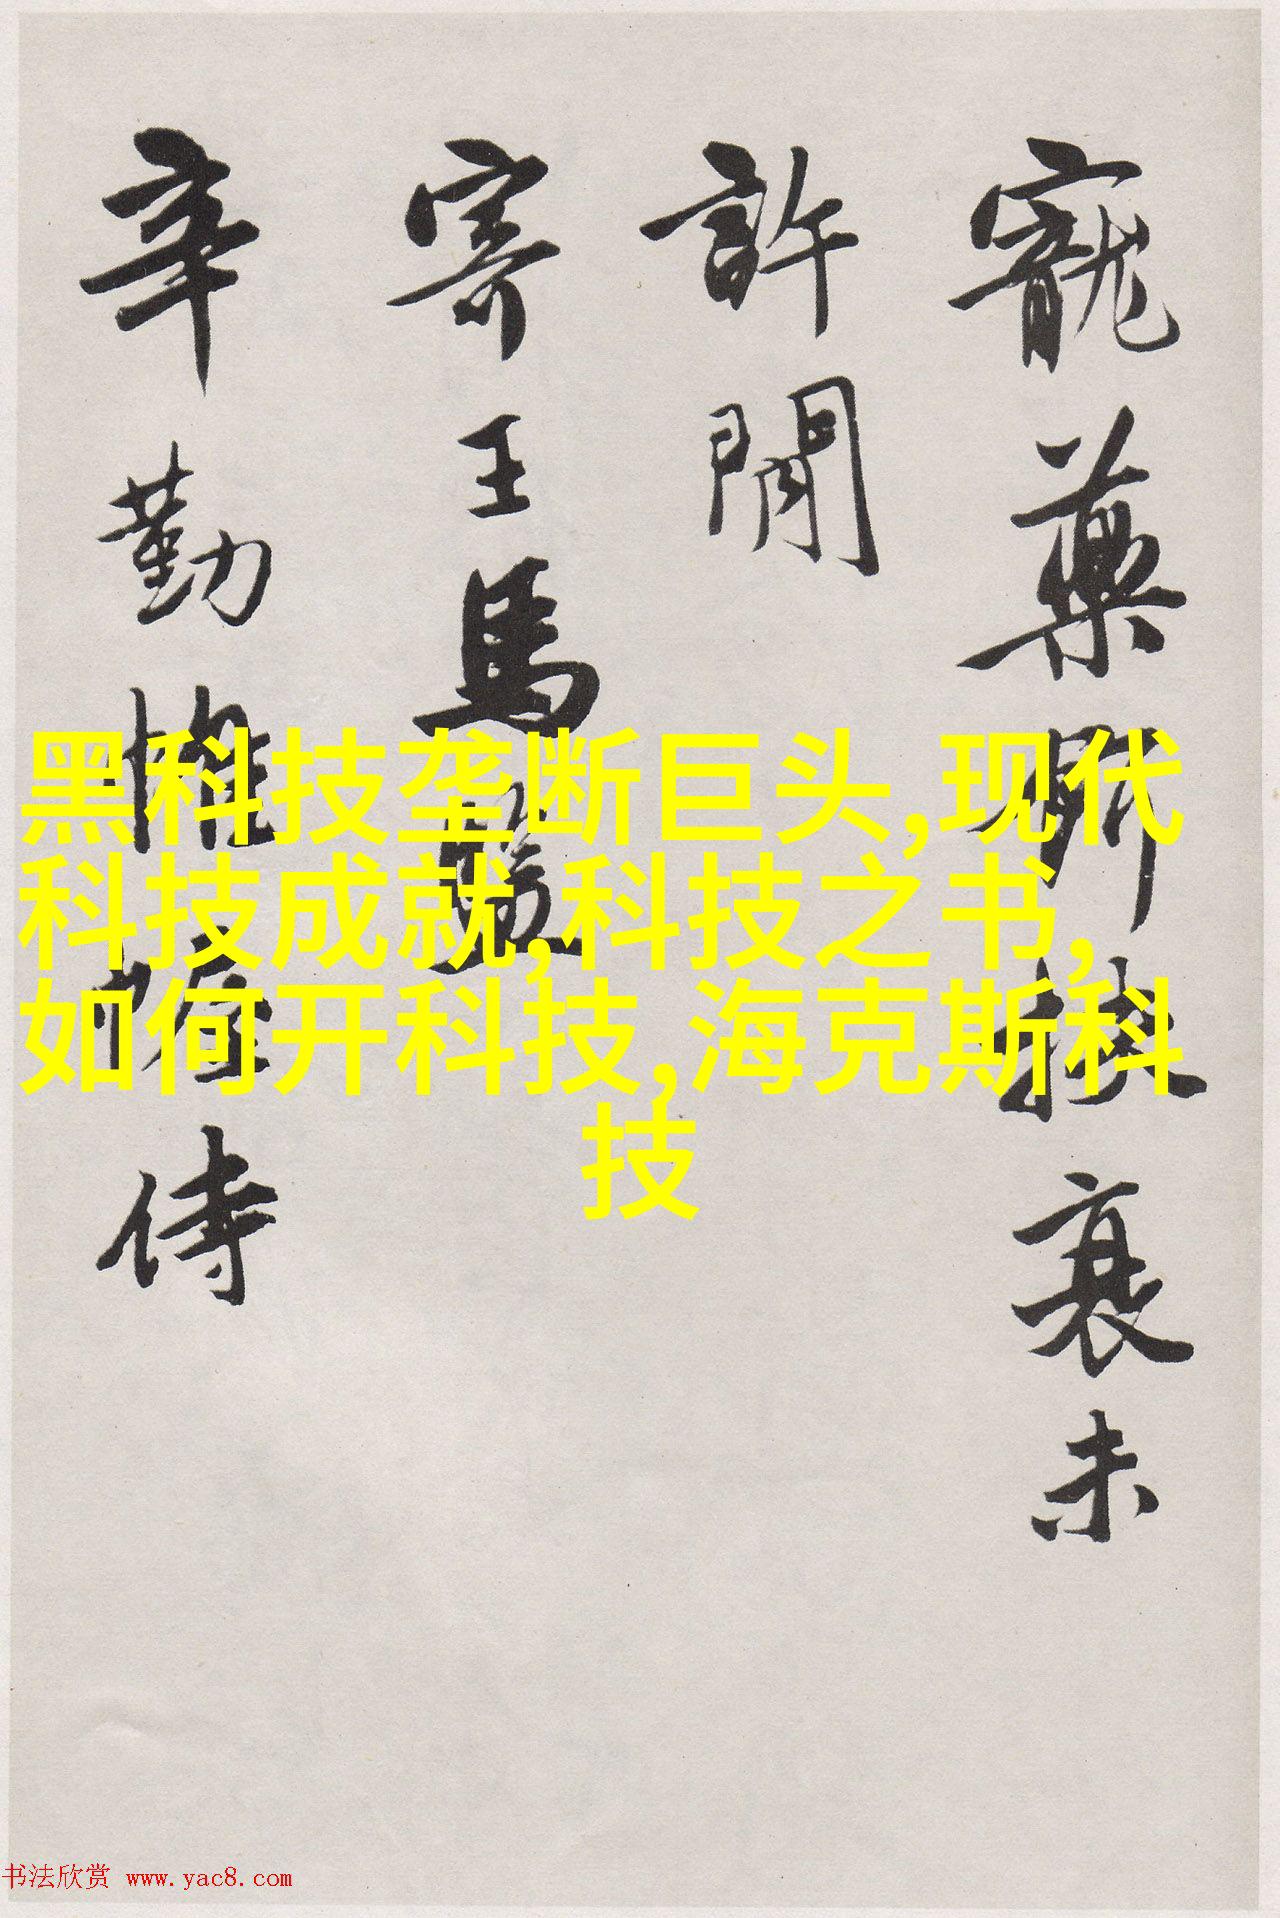 寵藥扶衰未
許閒
寄王馬
辛勤帷幄侍
黑科技垄断巨头,现代
科技成就,科技之书,
如何开科技,海克斯科
技
书法欣赏 www.yac8.com